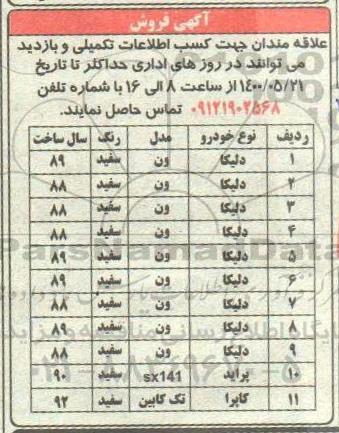 آگهی فروش
علاقه مندان جهت کسب اطلاعات تکمیلی و بازدید
می توانند در روز های اداری حداکثر تا تاریخ
۱۴۰۰/۰۵/۲۱ از ساعت ۸ الی ۱۶ با شماره تلفن
۰۹۱۲۱۹۰۲۵۶۸ تماس حاصل نمایند.
ردیف نوع خودرو مدل رنگ سال ساخت
۱ دلیکا ون سفید ۸۹
۲ دلیکا ون سفید ۸۸
۳ دلیکا ون سفید ۸۸
۴ دلیکا ون سفید ۸۸
۵ دلیکا ون سفید ۸۹
۶ دلیکا ون سفید ۸۹
۷ دلیکا ون سفید ۸۸
۸ دلیکا ون سفید ۸۹
۹ دلیکا ون سفید ۸۸
۱۰ پراید sx141 سفید ۹۰
۱۱ کاپرا تک کابین سفید ۹۲
ParsNamadData